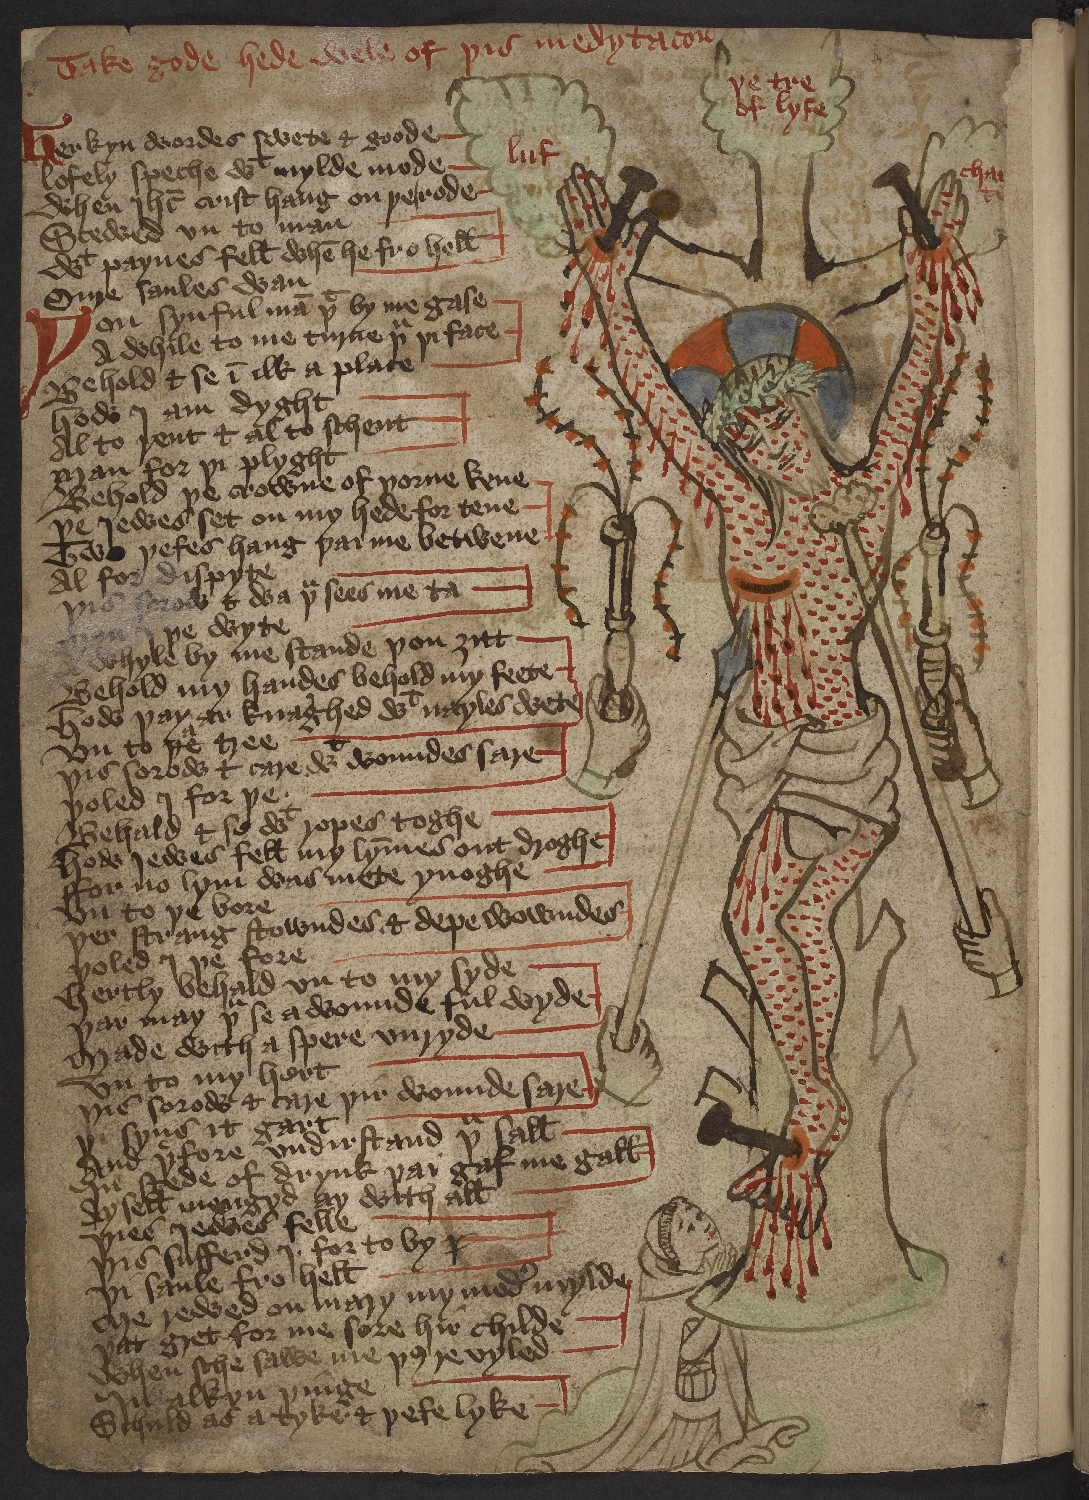 Take gode hede wele of þis medytacon
þe tre
of lyfe
luf
char
te
Herkyn wordes swete & goode
lofely speche wt mylde mode
When Jhc crist hang on þe rode
Stewed vn to man
Wt paynes fell whē he fro hell
Oure saules wan
You synful mā þt by me gase
A while to me turne þu þi face
Behold & se ī ilk a place
How I am dyght
Al to rent & al to schent
Man for þi plyght
Behold þe crowne of þorne kene
þe Jewes set on my hede for tene
Two þefes hang þai me betwene
Al for dispyte
þis sorow & wa þu sees me ta
man þe wyte
A whyle by me stande þou ȝitt
Behold my handes behold my feete
How þay ar knaghed wt nayles wete
Vn to þe tree
þis sorow & care wt woundes sare
þoled I for þe
Behald & se wt ropes toghe
How Jewes fell my lymes out droghe
ffor no lym was mete ynoghe
Vn to þe bore
þer strang stowndes & depe wowndes
þoled I þe fore
Hertly behald vn to my syde
þar may þu se a wounde ful wyde
Made with a spere vnryde
Vn to my hert
þis sorow & care þir wounde sare
þi syns it gart
And þfore vndirstand þu sall
In stede of drynk þai gaf me gall
Aysell mengyd ay with all
þies Jewes felle
þis sufferd I for to by
þi saule fro hell
Me rewed on mary my modr mylde
þat gret for me sore hir childe
When sche sawe me þus revyled
In alkyn þinge
Schuld as a tyke & þefe lyke